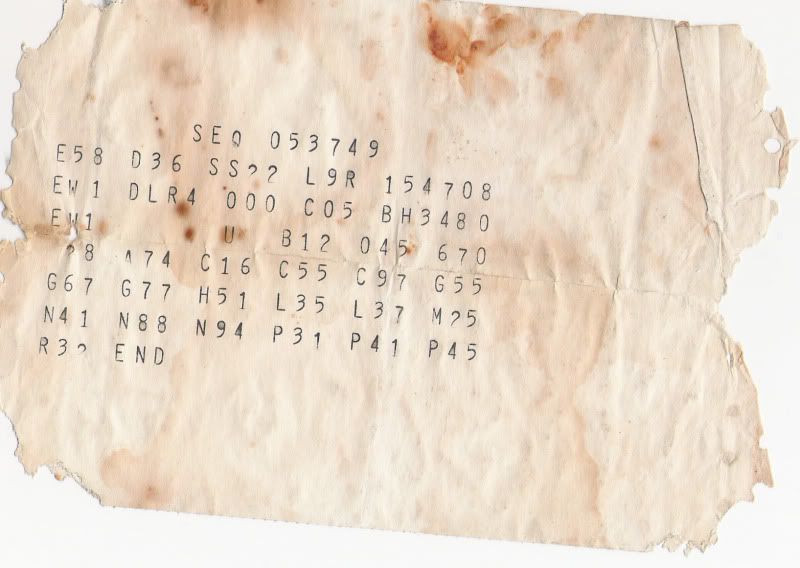 SEQ 053749
E58 D36 SS22 L9R 154708
EW1 DLR4 000 C05 BH3480
EW1 U B12 045 670
A74 C16 C55 C97 G55
G67 G77 H51 L35 L37 M25
N41 N88 N94 P31 P41 P45
R32 END